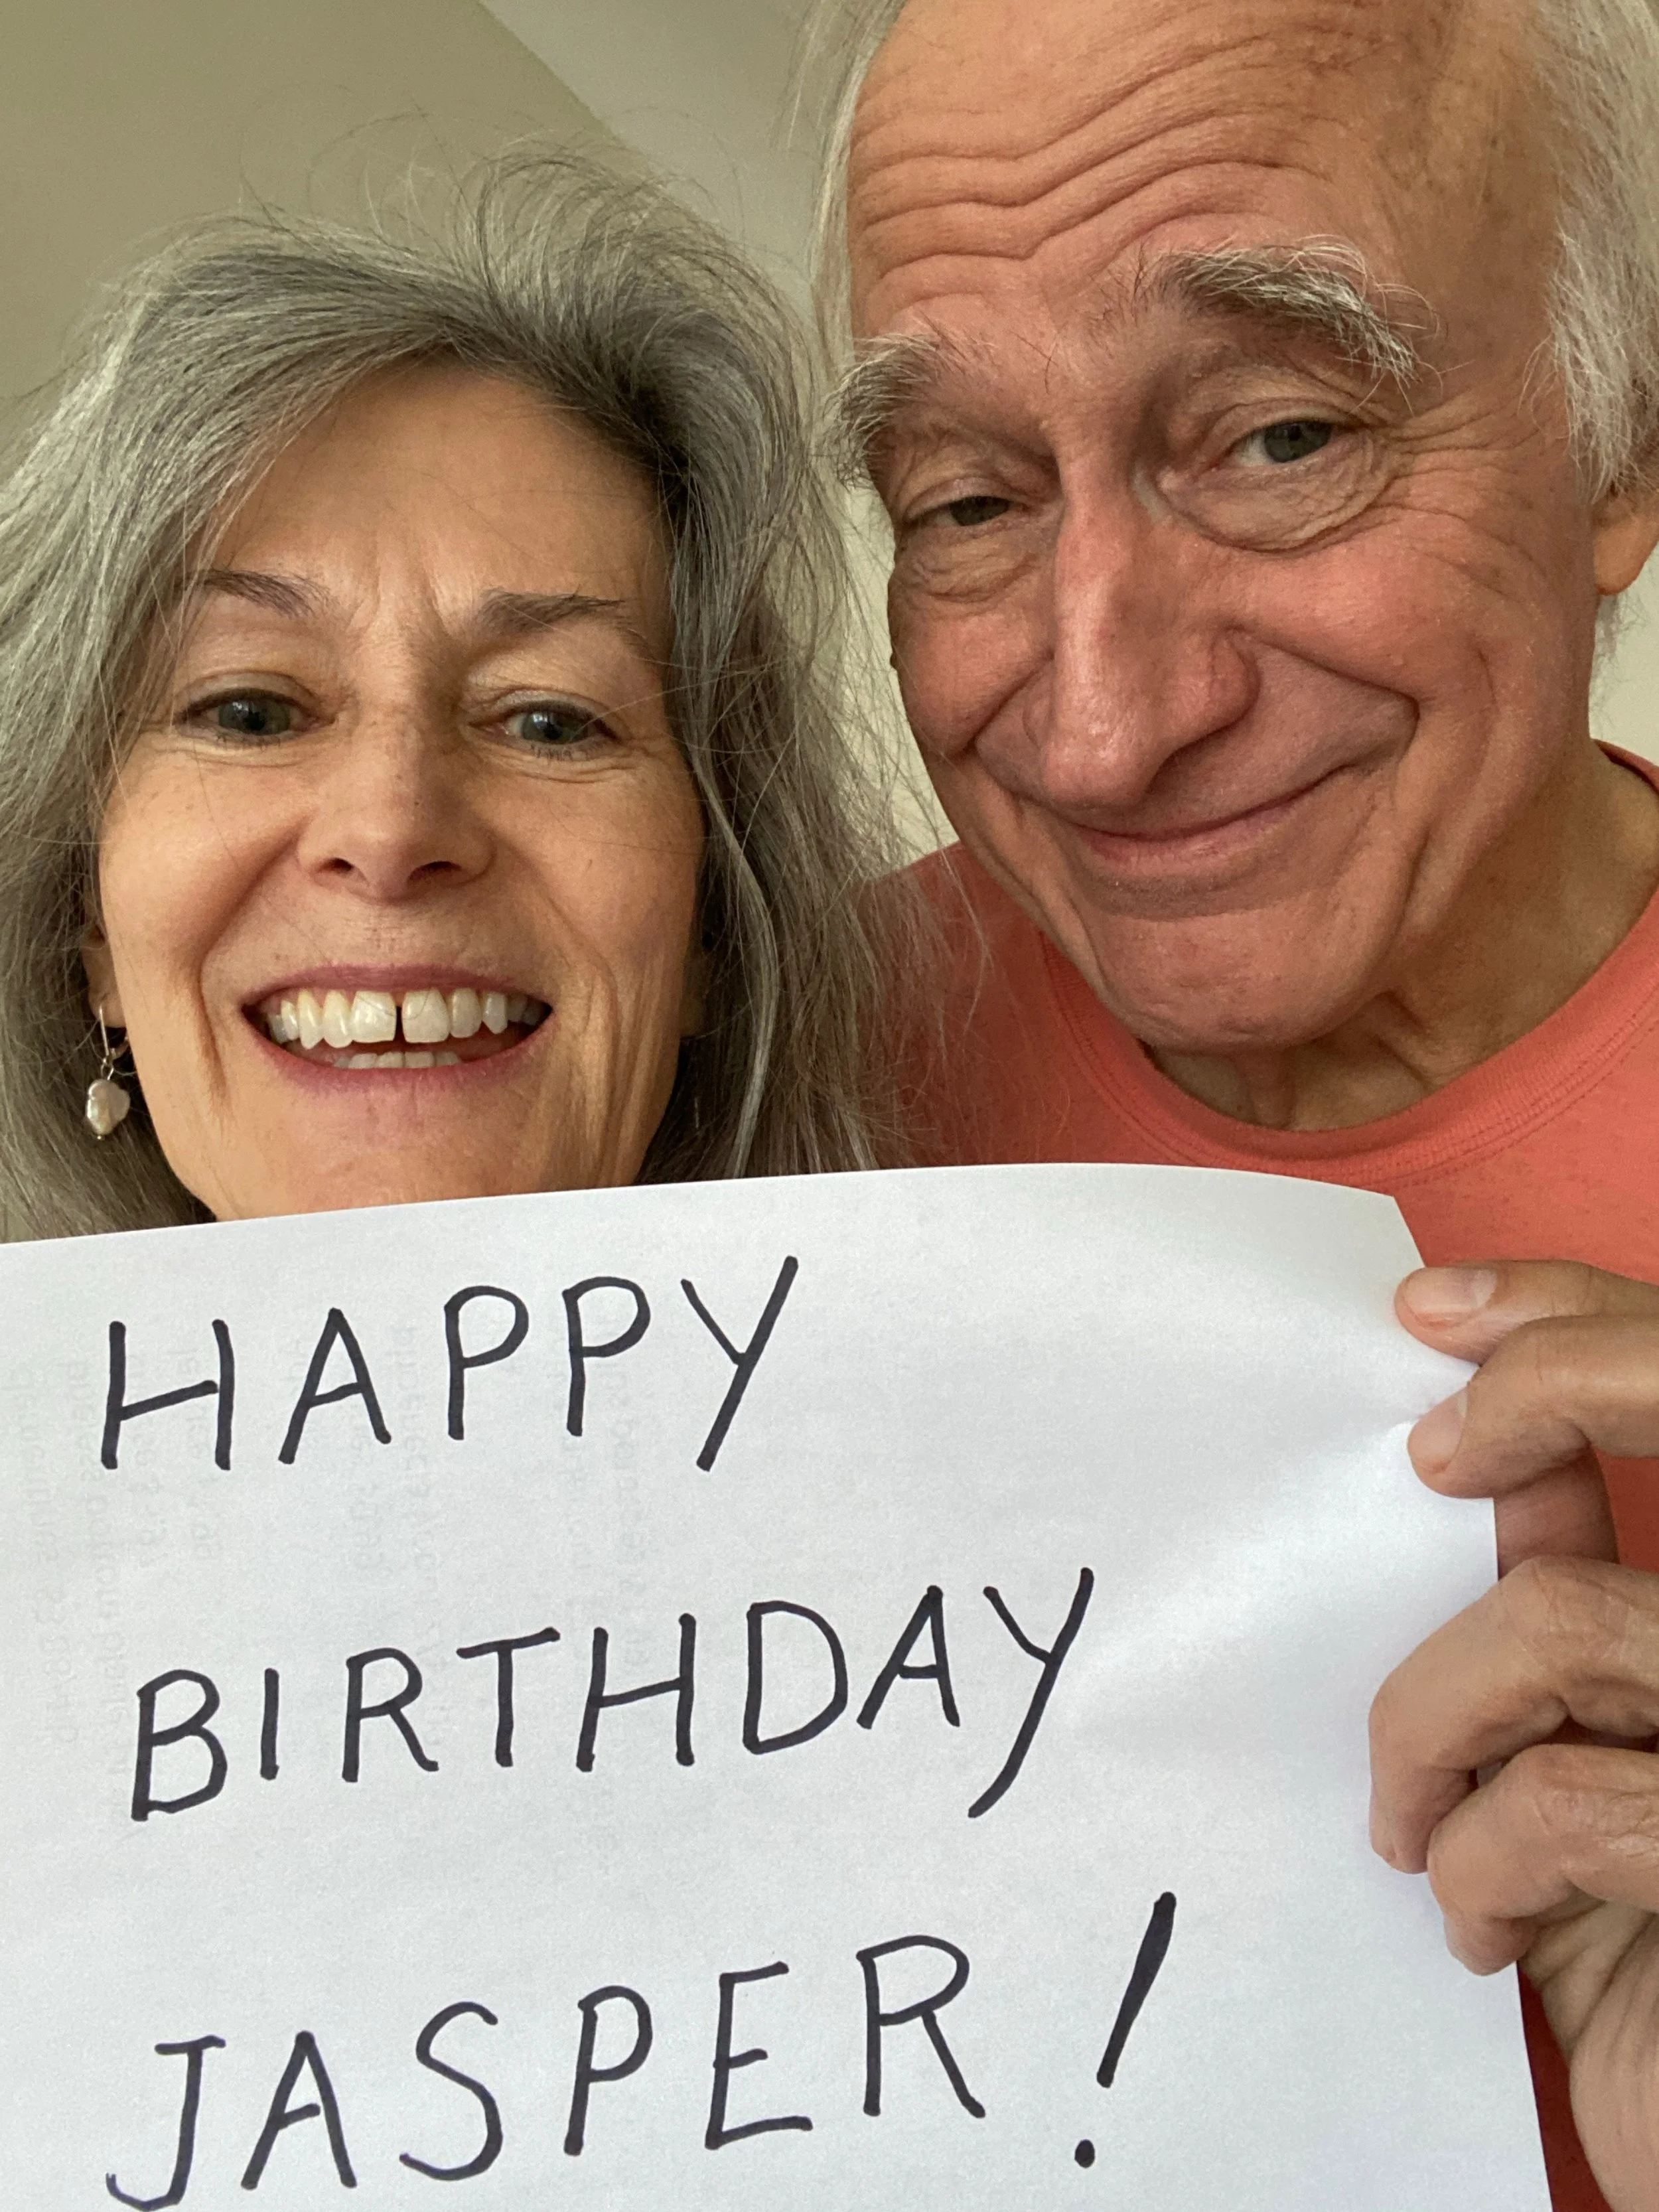 HAPPY
BIRTHDAY
JASPER!